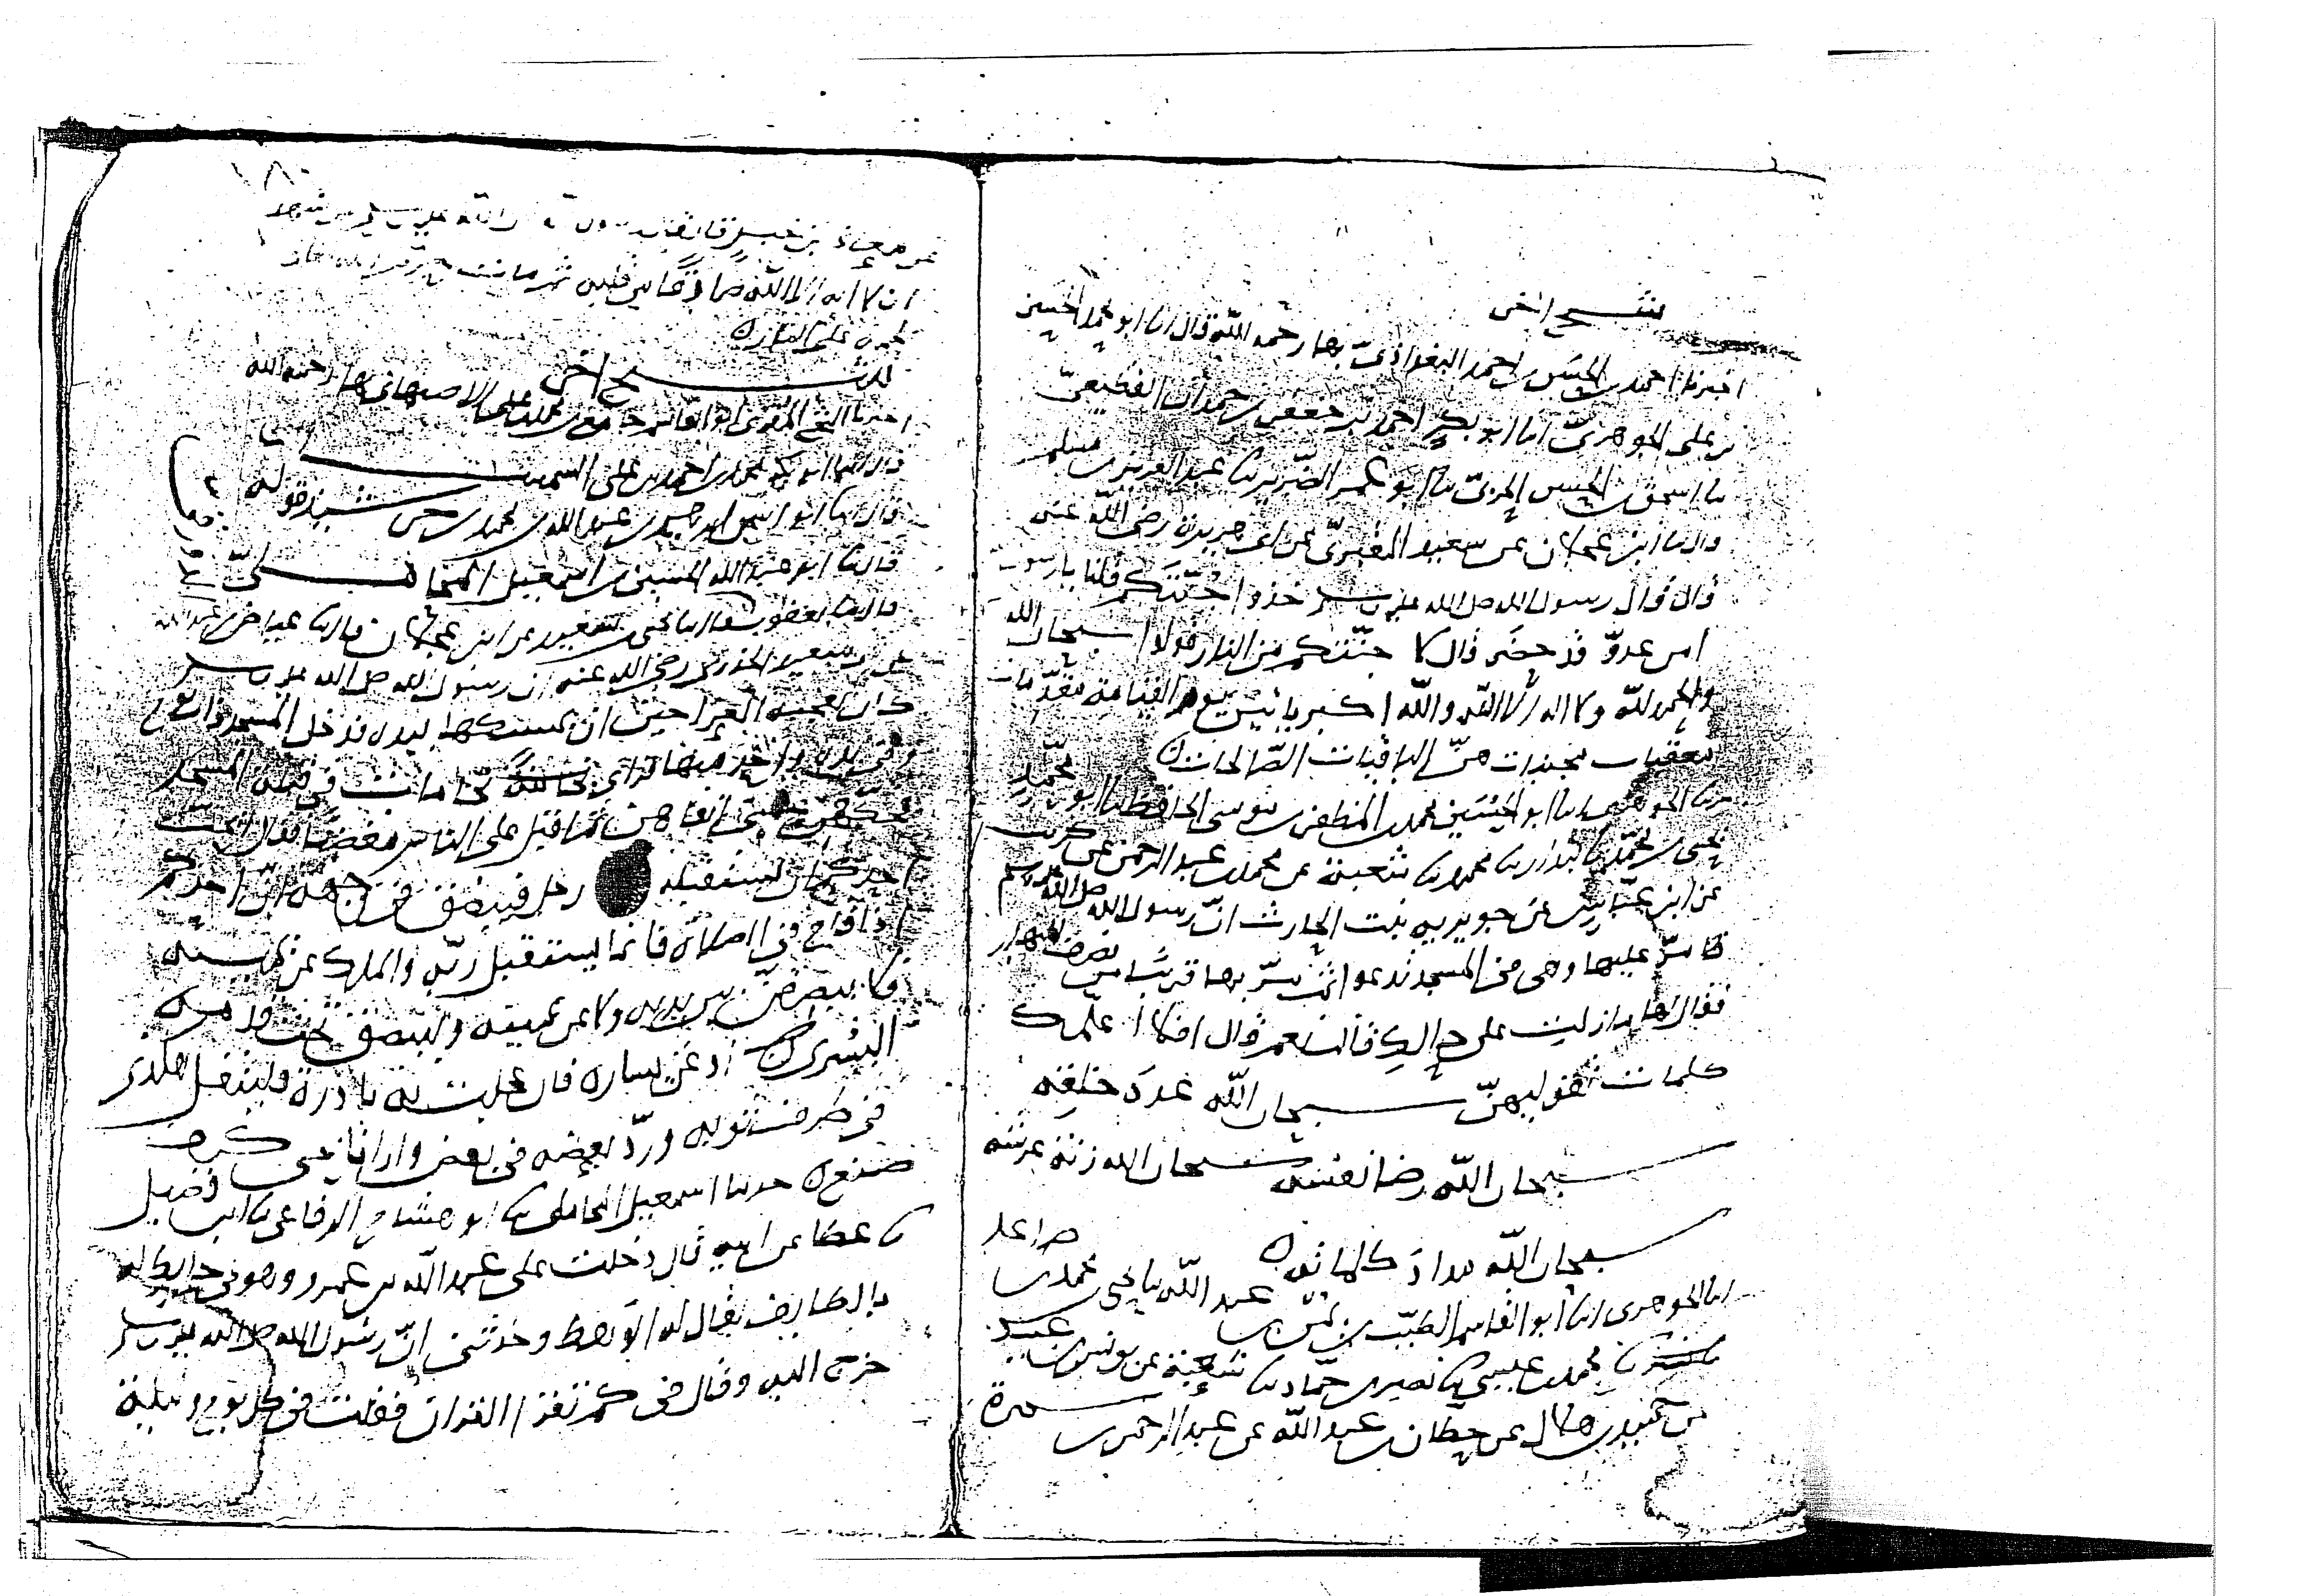 شيخ اخر
اخبرنا احمد بن الحسن بن احمد البغداذي بها رحمه الله قال انا ابو محمد الحسن
بن علي الجوهري انا ابو بكر احمد بن جعفر بن حمدان القطيعي
نا اسحق بن الحسن الحربي نا ابو عمر الضرير نا عبد العزيز بن مسلم
قال نا ابن عجلان عن سعيد المقبري عن ابي هريرة رضي الله عنه
قال قال رسول الله صلى الله عليه وسلم خذوا جنتكم قلنا يا رسول الله
امن عدو قد حضر قال لا جنتكم من النار قولوا سبحان الله
والحمد لله ولا اله الا الله والله اكبر ياتين يوم القيامة مقدمات
معقبات مجنبات هن الباقيات الصالحات
الجوهري انا ابو الحسين محمد بن المظفر بن موسى الحافظ نا ابو محمد
يحيى بن محمد نا بندار نا محمد نا شعبة عن محمد بن عبد الرحمن عن كريب
عن ابن عباس عن جويرية بنت الحارث ان رسول الله صلى الله عليه وسلم
مر عليها وهي في المسجد تدعو ثم مر بها قريبا من نصف النهار
فقال لها ما زلت على حالك قالت نعم قال افلا اعلمك
كلمات تقوليهن سبحان الله عدد خلقه
سبحان الله رضا نفسه سبحان الله زنة عرشه
سبحان الله مداد كلماته
انا الجوهري انا ابو القاسم الطيب بن يمن بن عبد الله نا يحيى بن محمد بن صاعد
نا محمد بن عيسى نا نصر بن حماد نا شعبة عن يونس بن عبيد
عن حميد بن هلال عن حطان بن عبد الله عن عبد الرحمن بن سمرة
١٨٠
عن معاذ بن جبل قال قال رسول الله صلى الله عليه وسلم من شهد
ان لا اله الا الله صادقا من قلبه ثم مات
حرم على النار
شيخ اخر
اخبرنا الشيخ المقرئ ابو القاسم بن محمد بن علي الاصبهاني بها رحمه الله
قال انا ابو بكر محمد بن احمد بن علي السمسار
قال نا ابو اسحق ابرهيم بن عبد الله بن محمد بن خرشيذ قوله
قال نا ابو عبد الله الحسين بن اسمعيل المحاملي
قال نا يعقوب قال نا يحيى بن سعيد عن ابن عجلان قال نا عياض بن عبد الله
عن ابي سعيد الخدري رضي الله عنه ان رسول الله صلى الله عليه وسلم
كان تعجبه العراجين ان يمسكها بيده فدخل المسجد ذات يوم
وفي يده واحد منها فراى نخامات في قبلة المسجد
فحكهن حتى انقاهن ثم اقبل على الناس مغضبا فقال ايحب
احدكم ان يستقبله رجل فيبصق في وجهه ان احدكم
اذا قام في الصلاة فانما يستقبل ربه والملك عن يمينه
فلا يبصق بين يديه ولا عن يمينه وليبصق تحت قدمه
اليسرى او عن يساره فان عجلت به بادرة فليتفل هكذى
في طرف ثوبه ورد بعضه في بعض وارانا يحيى كيف
صنع حدثنا اسمعيل المحاملي نا ابو هشام الرفاعي نا ابن فضيل
نا عطا عن ابيه قال دخلت على عبد الله بن عمرو وهو في حايط له
بالطايف يقال له الوهط وحدثني ان رسول الله صلى الله عليه وسلم
خرج اليه وقال في كم تقرا القران فقلت في كل يوم وليلة